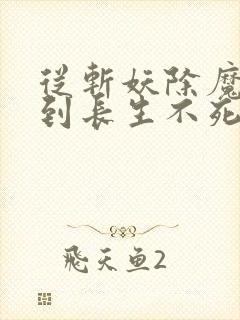 從斬妖除魔
到長生不死
飛天魚2